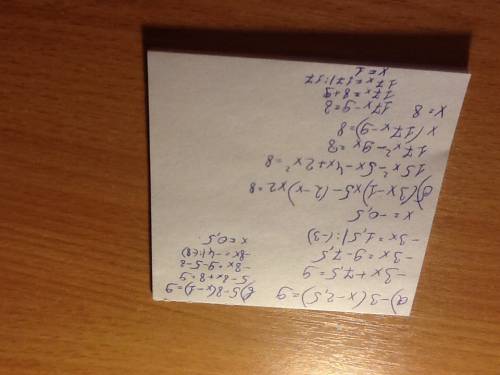 а) -3(x-2,5)=9
-3x+7,5=9
-3x=9-7,5
-3x=1,5 |:(-3)
x=-0,5
б) 5-8(x-1)=9
5-8x+8=9
-8x=9-5-8
-8x=-4|:(-8)
x=0,5
(3x-1)x5-(2-x)x2=8
15x²-5x-4x+2x²=8
17x²-9x=8
x(17x-9)=8
x=8 17x-9=8
17x=8+9
17x=17|:17
x=1